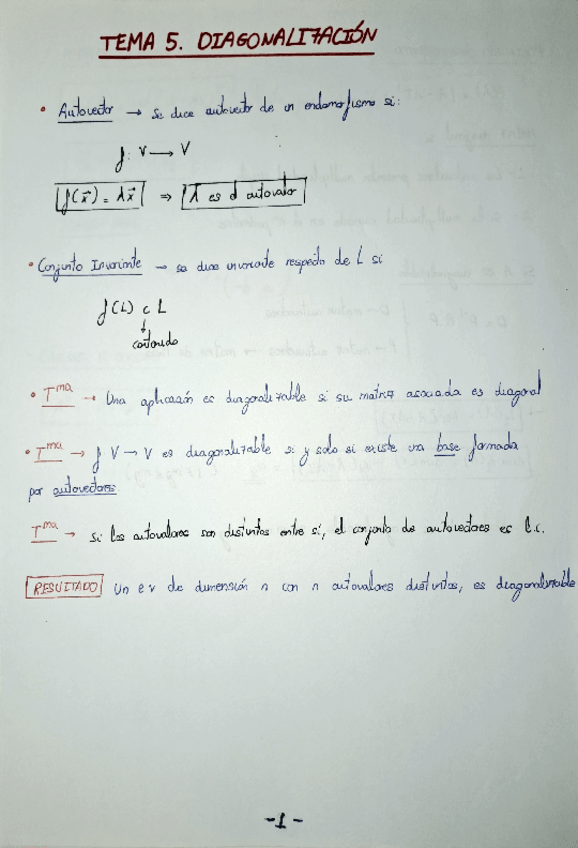 TEMA 5. DIAGONALIZACIÓN
• Autovector → se dice autovector de un endomorfismo si:
f: V → V
f(x⃗) = λx⃗ ⇒ λ es el autovalor
• Conjunto Invariante → se dice invariante respecto de L si
f(L) ⊂ L
↓
contenido
• Tma → Una aplicación es diagonalizable si su matriz asociada es diagonal
• Tma → f V → V es diagonalizable si y solo si existe una base formada
por autovectores.
Tma → Si los autovalores son distintos entre sí, el conjunto de autovectores es l.i.
RESULTADO Un e v de dimensión n con n autovalores distintos, es diagonalizable
-1-